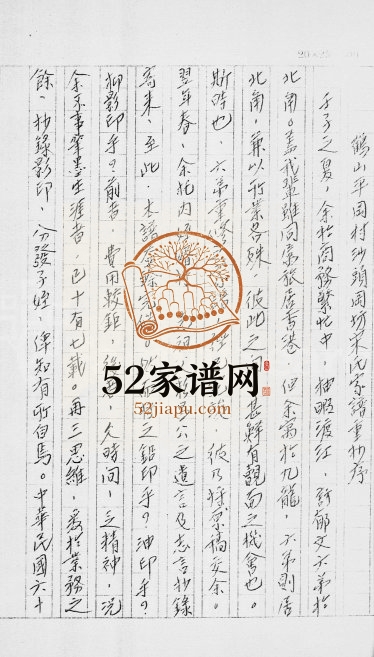 鶴山平岡村沙頭岡坊宋氏家譜重抄序
壬子之夏，余於商務繁忙中，抽暇渡江，訪郁文六弟於
北角。蓋我輩雖同為旅居香港，但余寓於九龍，六弟則居
北角，兼以所業各殊，彼此之間，甚鮮有覿面之機會也。
斯時也，六弟重 彼乃將原稿交余。
翌年春，余於內 公之遺言及志言抄錄
寄來，至此，本譜 之鉛印乎？油印乎？
抑影印乎？前者，費用較鉅，後 久時間，乏精神，況
余不事筆墨生涯者，已十有七載。再三思維，爰於業務之
餘，抄錄影印，分發子姪，俾知有所自焉。中華民國六十
52家谱网
52jiapu.com